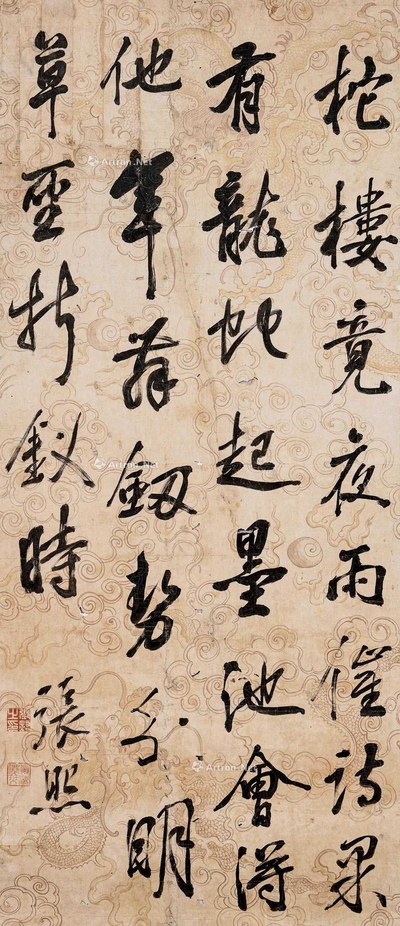 柁樓竟夜雨催詩果
有龍蛇起墨池會得
他年舞劔勢分明
草聖折釵時
張照
Artron.Net
Artron.Net
Artron.Net
Artron.Net